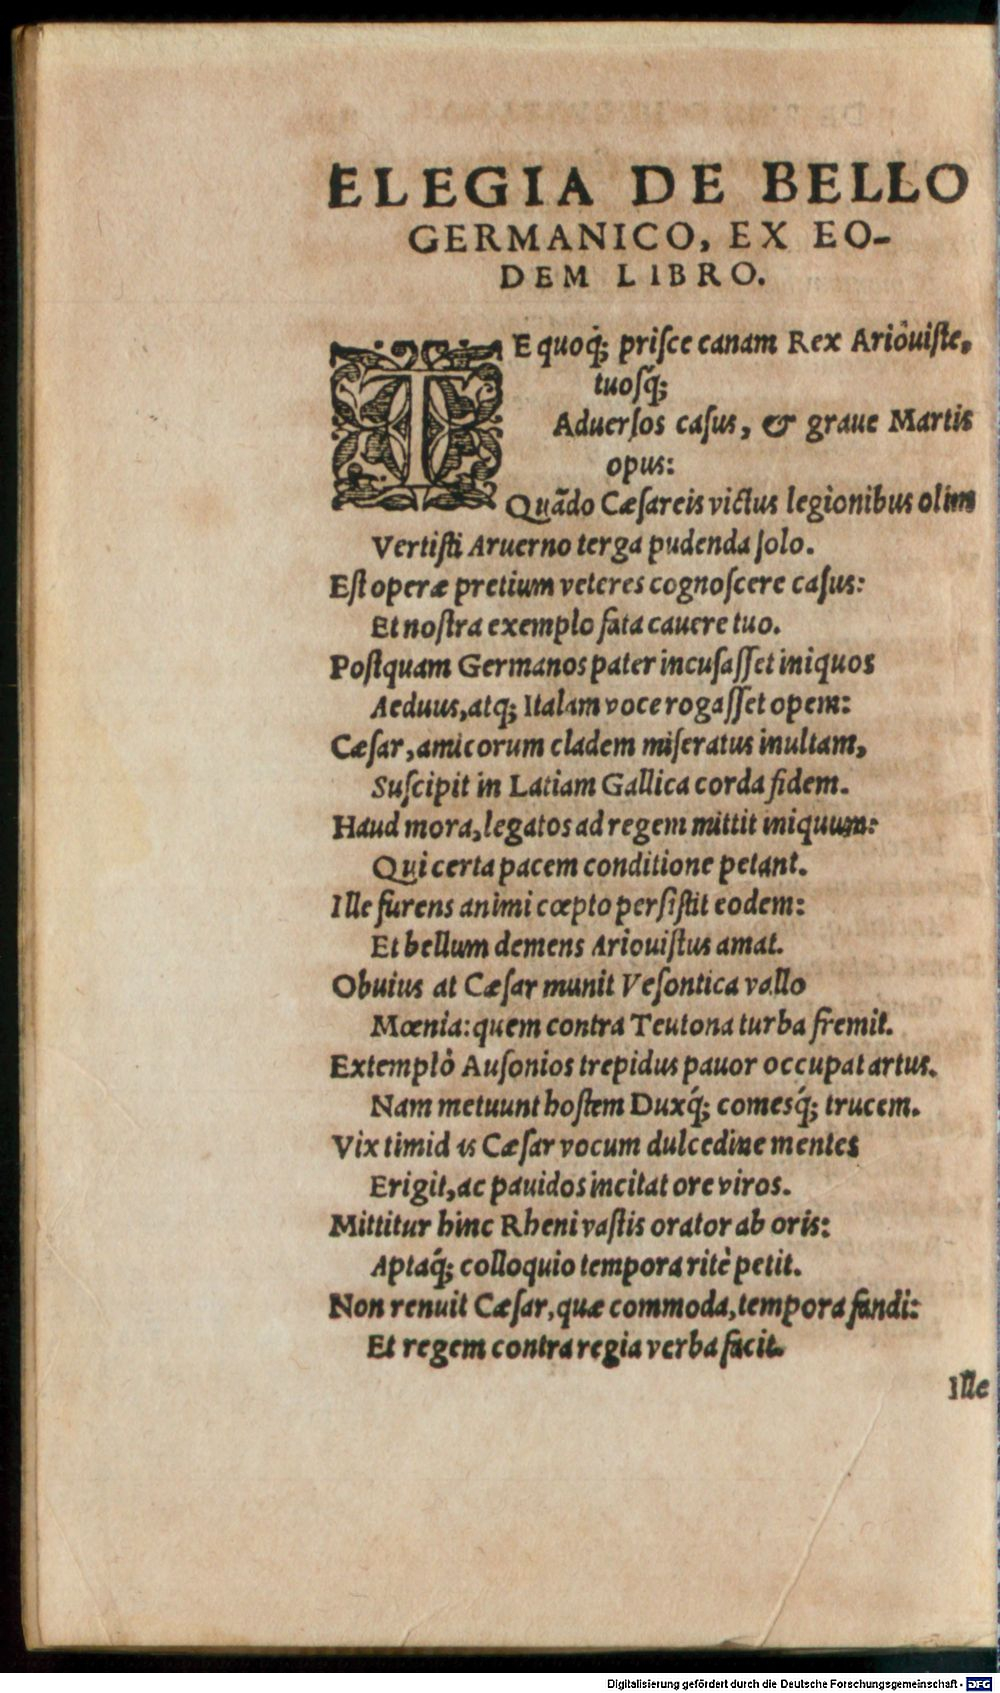 ELEGIA DE BELLO
GERMANICO, EX EO-
DEM LIBRO.
TE quoq́; priſce canam Rex Arioviſte,
tuoſq́;
Aduerſos caſus, & graue Martis
opus:
Quãdo Cæſareis victus legionibus olim
Vertiſti Aruerno terga pudenda ſolo.
Eſt operæ pretium veteres cognoſcere caſus:
Et noſtra exemplo fata cauere tuo.
Poſtquam Germanos pater incuſaſſet iniquos
Aeduus, atq; Italam voce rogaſſet opem:
Cæſar, amicorum cladem miſeratus inultam,
Suſcipit in Latiam Gallica corda fidem.
Haud mora, legatos ad regem mittit iniquum:
Qui certa pacem conditione petant.
Ille furens animi cœpto perſiſtit eodem:
Et bellum demens Ariouiſtus amat.
Obuius at Cæſar munit Veſontica vallo
Mœnia: quem contra Teutona turba fremit.
Extemplò Auſonios trepidus pauor occupat artus.
Nam metuunt hoſtem Duxq́; comesq́; trucem.
Vix timid is Cæſar vocum dulcedine mentes
Erigit, ac pauidos incitat ore viros.
Mittitur hinc Rheni vaſtis orator ab oris:
Aptaq́; colloquio tempora ritè petit.
Non renuit Cæſar, quæ commoda, tempora fandi:
Et regem contra regia verba facit.
Ille
Digitalisierung gefördert durch die Deutsche Forschungsgemeinschaft - DFG